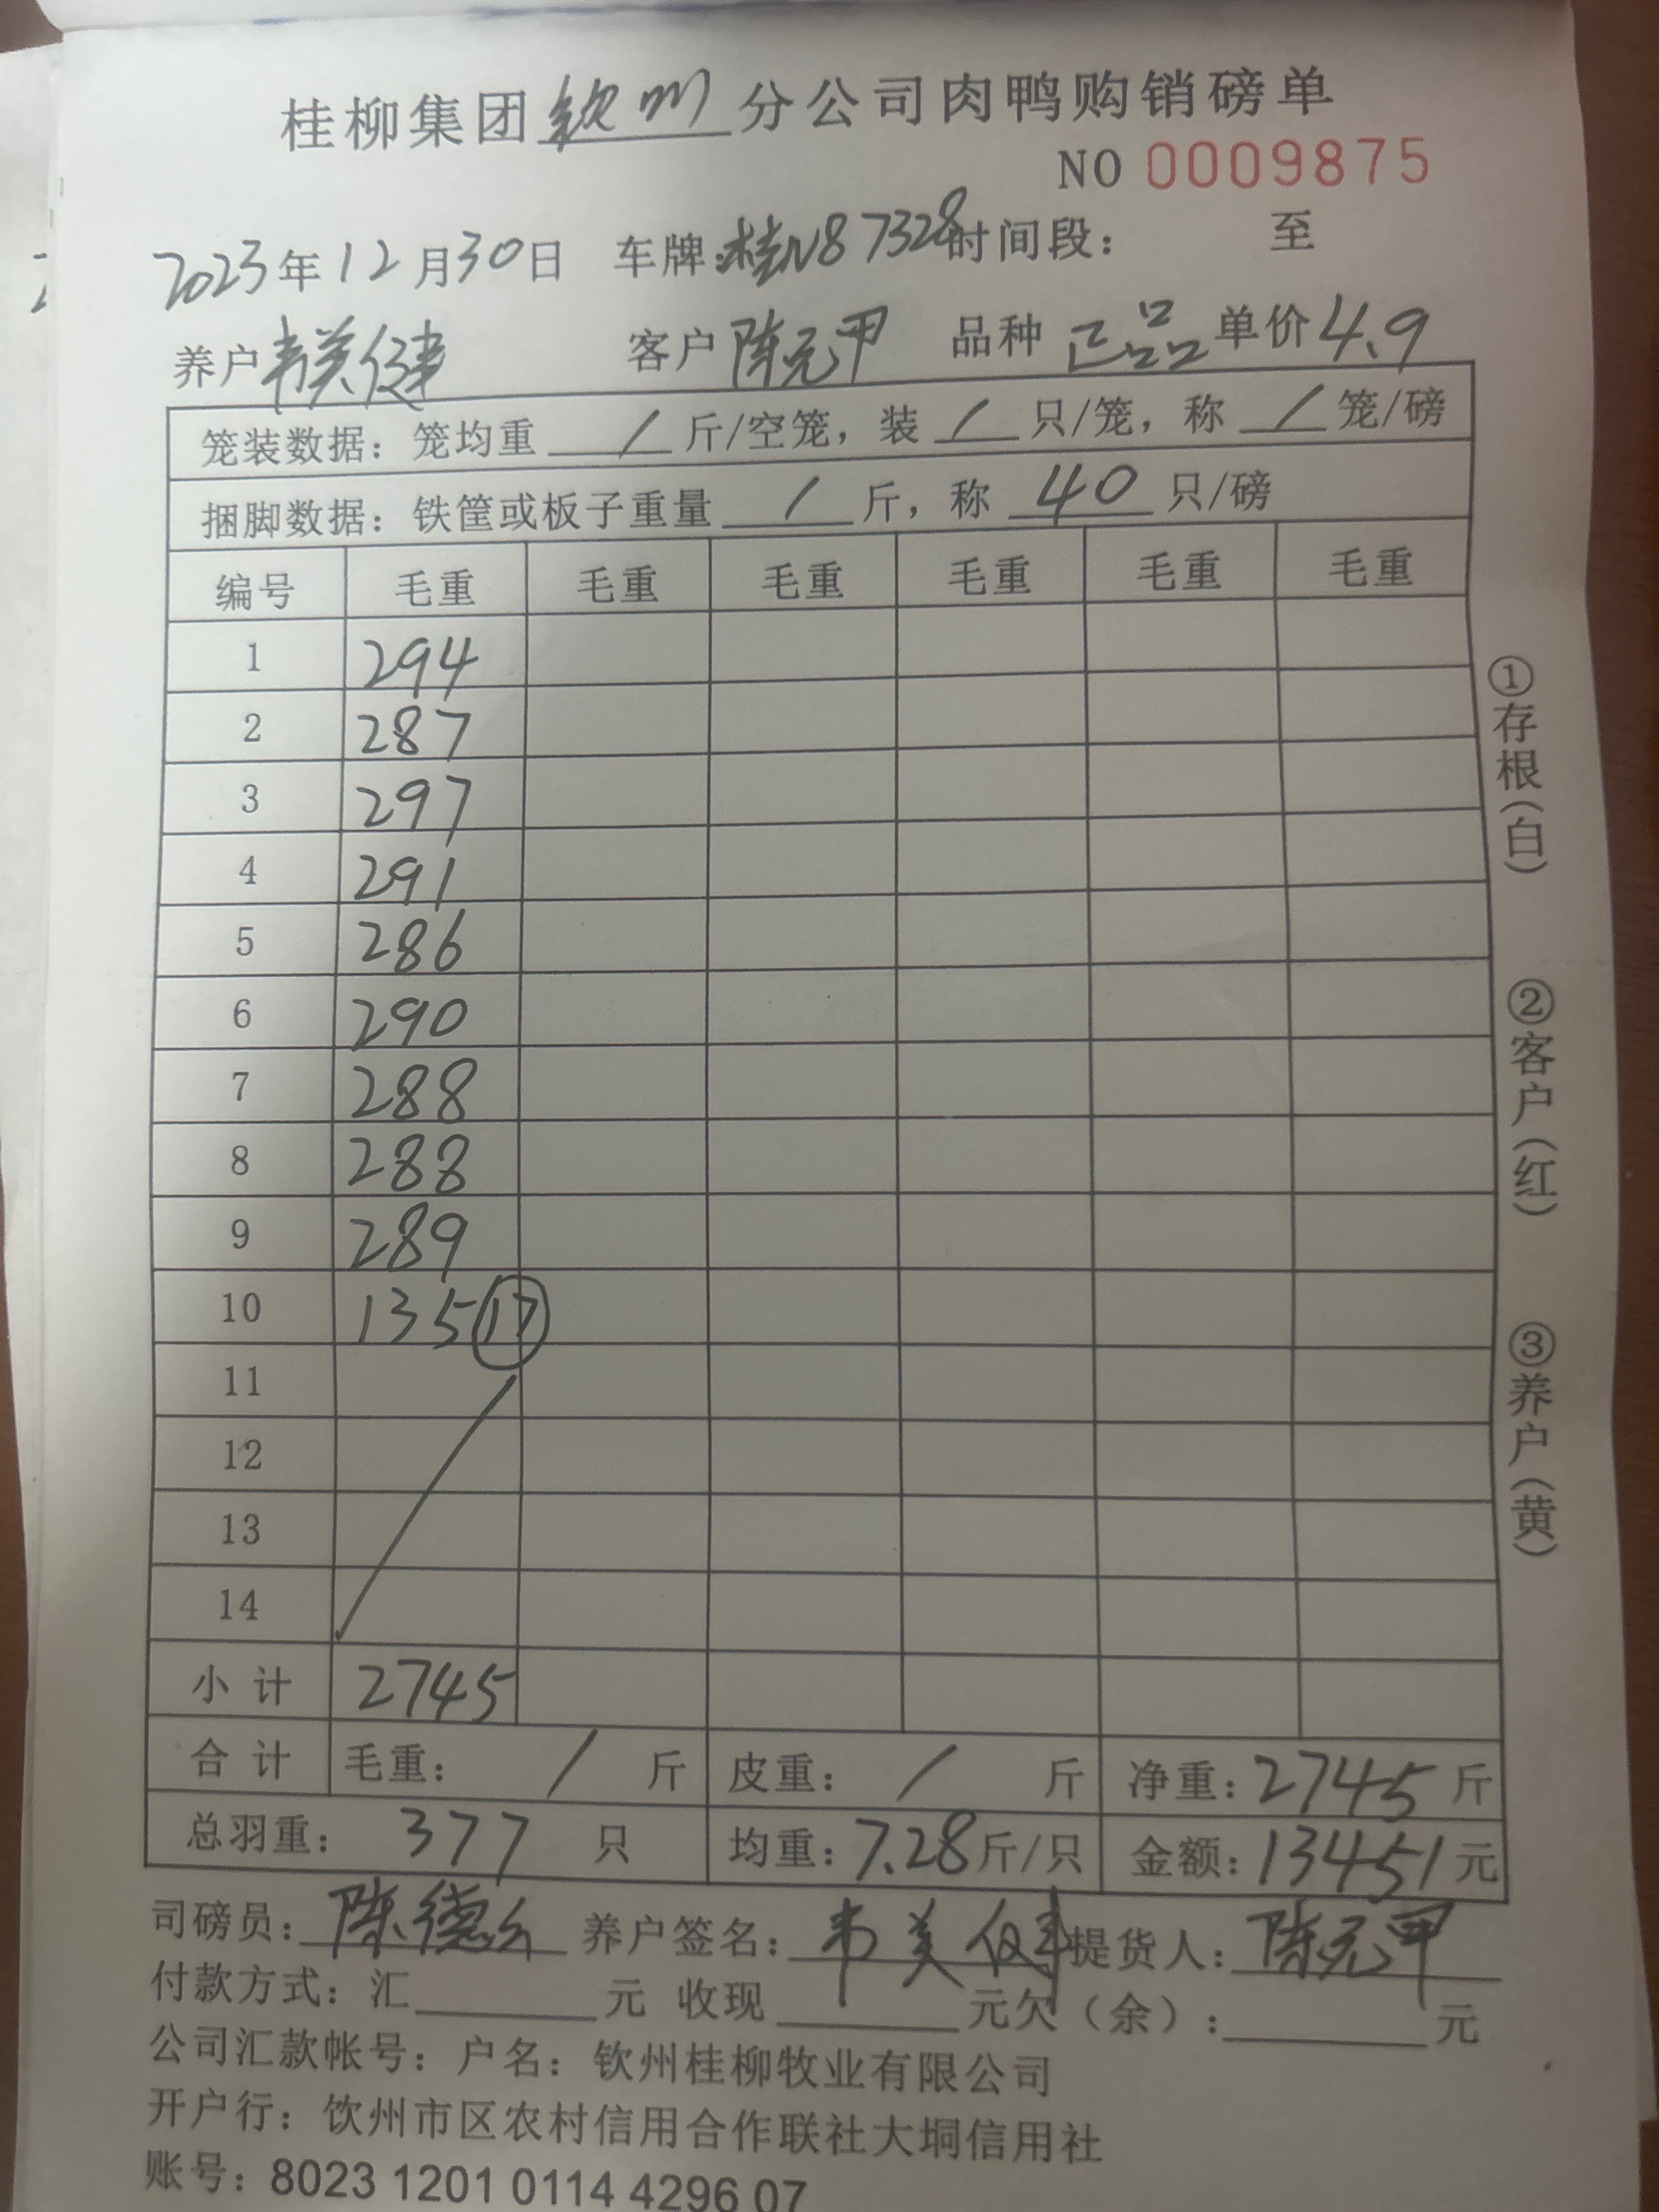 桂柳集团钦州分公司肉鸭购销磅单
NO 0009875
2023年12月30日 车牌:桂N87328时间段: 至
养户韦美健 客户陈元甲 品种 正品 单价4.9
笼装数据:笼均重 / 斤/空笼,装 / 只/笼,称 / 笼/磅
捆脚数据:铁筐或板子重量 / 斤,称 40 只/磅
编号 毛重 毛重 毛重 毛重 毛重 毛重
1 294
2 287
3 297
4 291
5 286
6 290
7 288
8 288
9 289
10 135 17
11
12
13
14
小计 2745
合计 毛重: / 斤 皮重: / 斤 净重:2745斤
总羽重: 377 只 均重:7.28斤/只 金额:13451元
司磅员:陈德 养户签名:韦美健 提货人:陈元甲
付款方式:汇 元 收现 元欠(余): 元
公司汇款帐号:户名:钦州桂柳牧业有限公司
开户行:饮州市区农村信用合作联社大垌信用社
账号:8023 1201 0114 4296 07
①存根(白)
②客户(红)
③养户(黄)